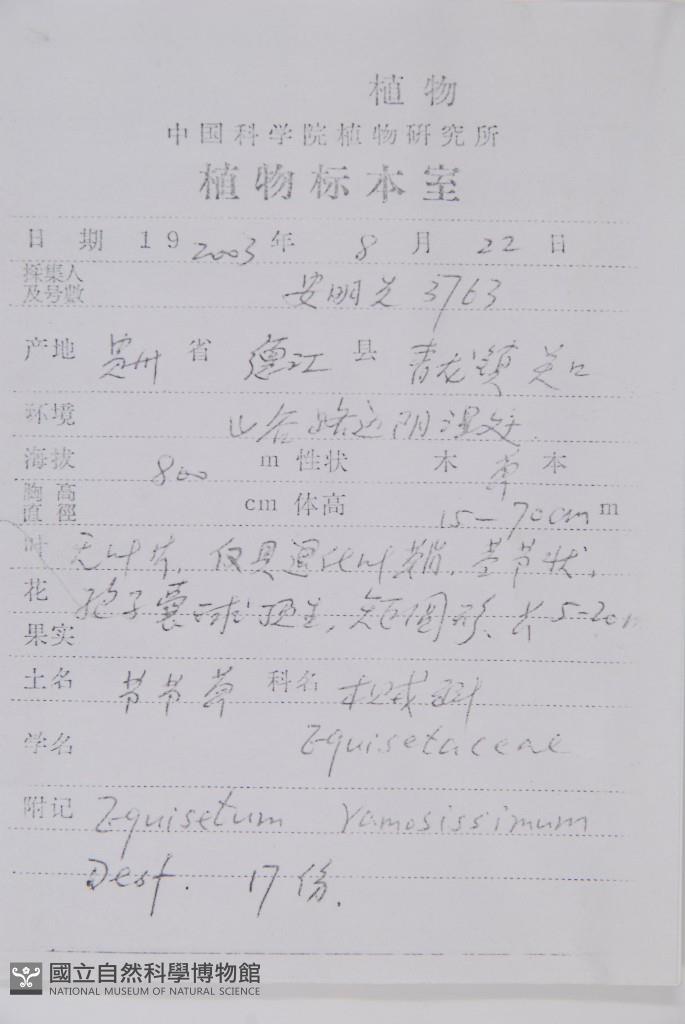 植物
中国科学院植物研究所
植物标本室
日期 19 2003 年 8 月 22 日
採集人
及号數 安明先 3763
产地 贵州 省 德江 县 青龙镇 关口
环境 山谷路边阴湿处
海拔 800 m 性状 木 草 本
胸高
直徑 cm 体高 15-70cm m
叶 无叶片，仅具退化叶鞘，茎节状，
花 孢子囊 球 生，矩圆形、长 5-20
果实
土名 节节草 科名 木贼科
学名 Equisetaceae
附记 Equisetum ramosissimum
Desf. 17份.
國立自然科學博物館
NATIONAL MUSEUM OF NATURAL SCIENCE